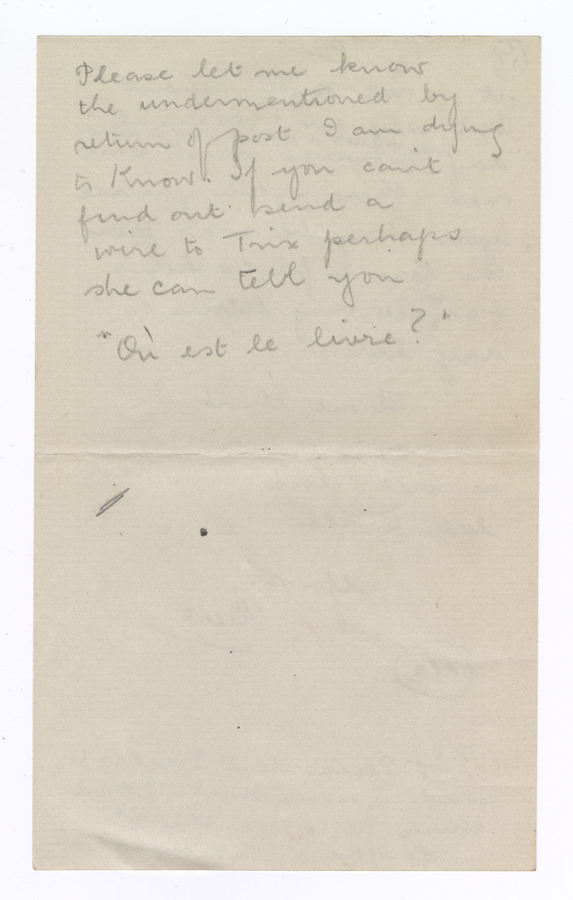 Please let me know
the undermentioned by
return of post I am dying
to Know. If you can't
find out send a
wire to Trix perhaps
she can tell you
"Où est le livre?"